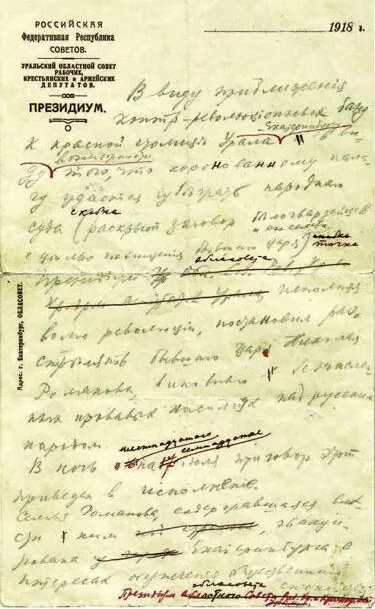 РОССИЙСКАЯ
Федеративная Республика
СОВЕТОВ.
УРАЛЬСКИЙ ОБЛАСТНОЙ СОВЕТ
РАБОЧИХ,
КРЕСТЬЯНСКИХ и АРМЕЙСКИХ
ДЕПУТАТОВ.
ПРЕЗИДИУМ.
1918 г.
Адрес: г. Екатеринбург, ОБЛАСОВЕТ.
В виду приближения
контр-революционных банд
к красной столице Урала Екатеринбургу
и в виду возможности
того, что коронованному пала-
чу удастся избежать народнаго
суда (раскрыт заговор белогвардейцев
с целью похищения бывшаго царя) скобка
точка
Президиум областного
исполняя
волю революции, постановил рас-
стрелять бывшаго царя Николая
Романова, виновнаго в безчислен-
ных кровавых насилиях над русским
народом
шестнадцатого
семнадцатое
В ночь на июля приговор этот
приведен в исполнение.
Семья Романова, содержавшаяся вме-
сте с ним эвакуи-
рована из Екатеринбурга в
интересах общественного
спокойствия
Президиум областного Совета